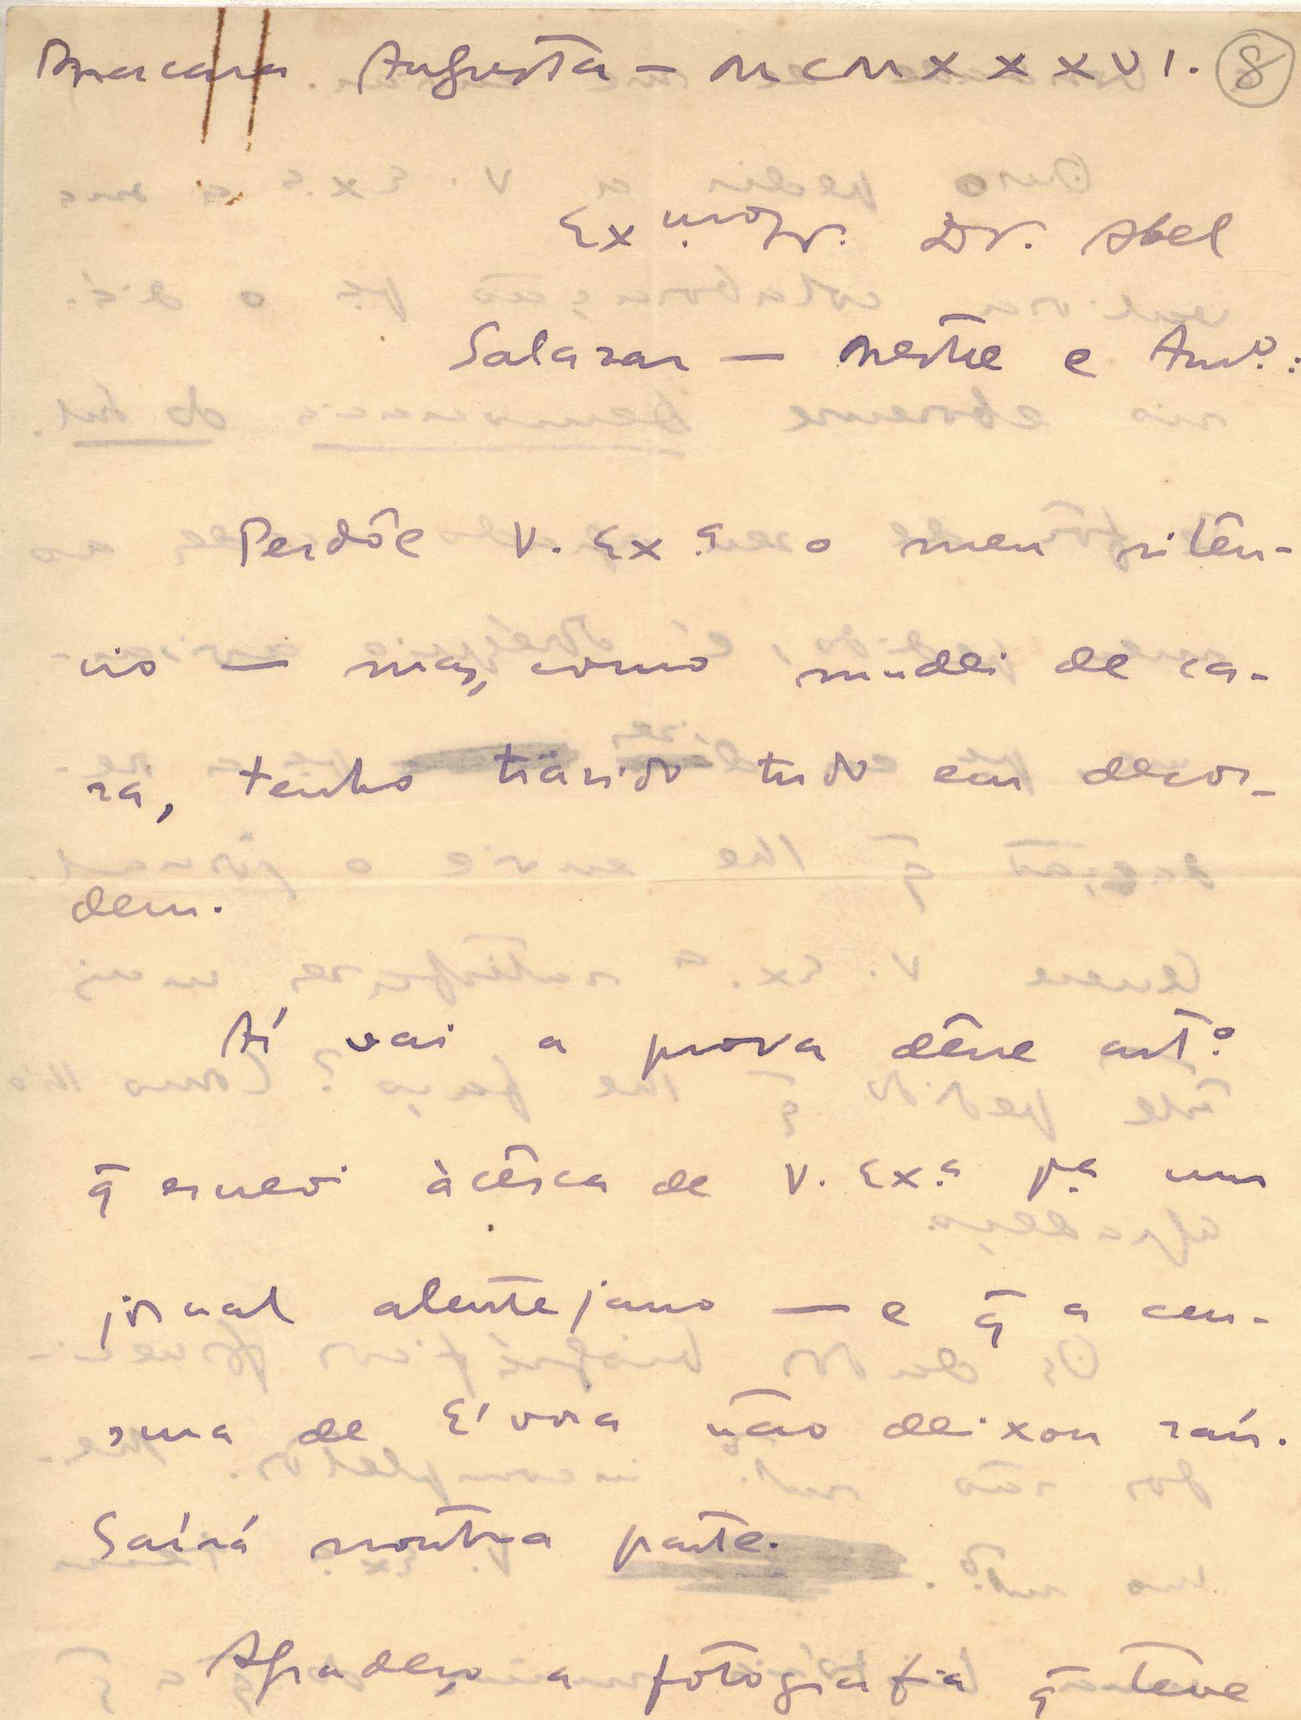 Bracara Augusta — MCMXXXVI. 8
Exmo Sr. Dr. Abel
Salazar — Mestre e Amo.:
Perdôe V. Exa. o meu silên-
cio — mas, como mudei de ca-
sa, tenho trazido tudo em desor-
dem.
Aí vai a prova dêsse arto.
q̄ escrevi àcêrca de V. Exa. pa. um
jornal alentejano — e q̄ a cen-
sura de Évora não deixou sair.
Sairá noutra parte.
Agradeço a fotografia q̄ teve